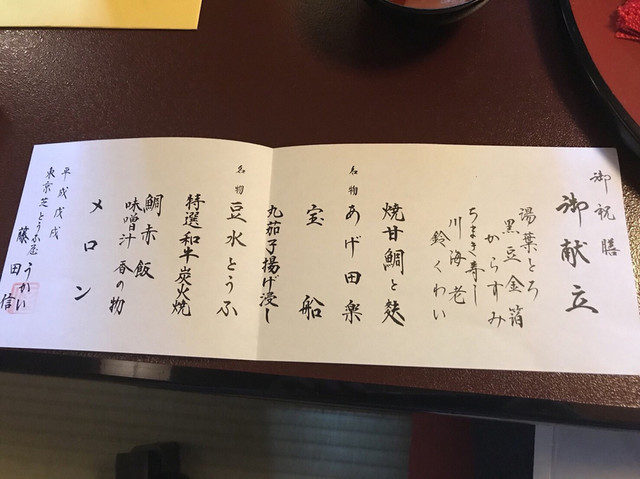 御祝膳
御献立
湯葉とろ
黒豆金箔
からすみ
ちまき寿し
川海老
鈴くわい
焼甘鯛と麩
名物 あげ田楽
宝船
丸茄子揚げ浸し
名物 豆水とうふ
特選和牛炭火焼
鯛赤飯
味噌汁 香の物
メロン
平成戊戌
東京芝とうふ屋うかい
藤田 信